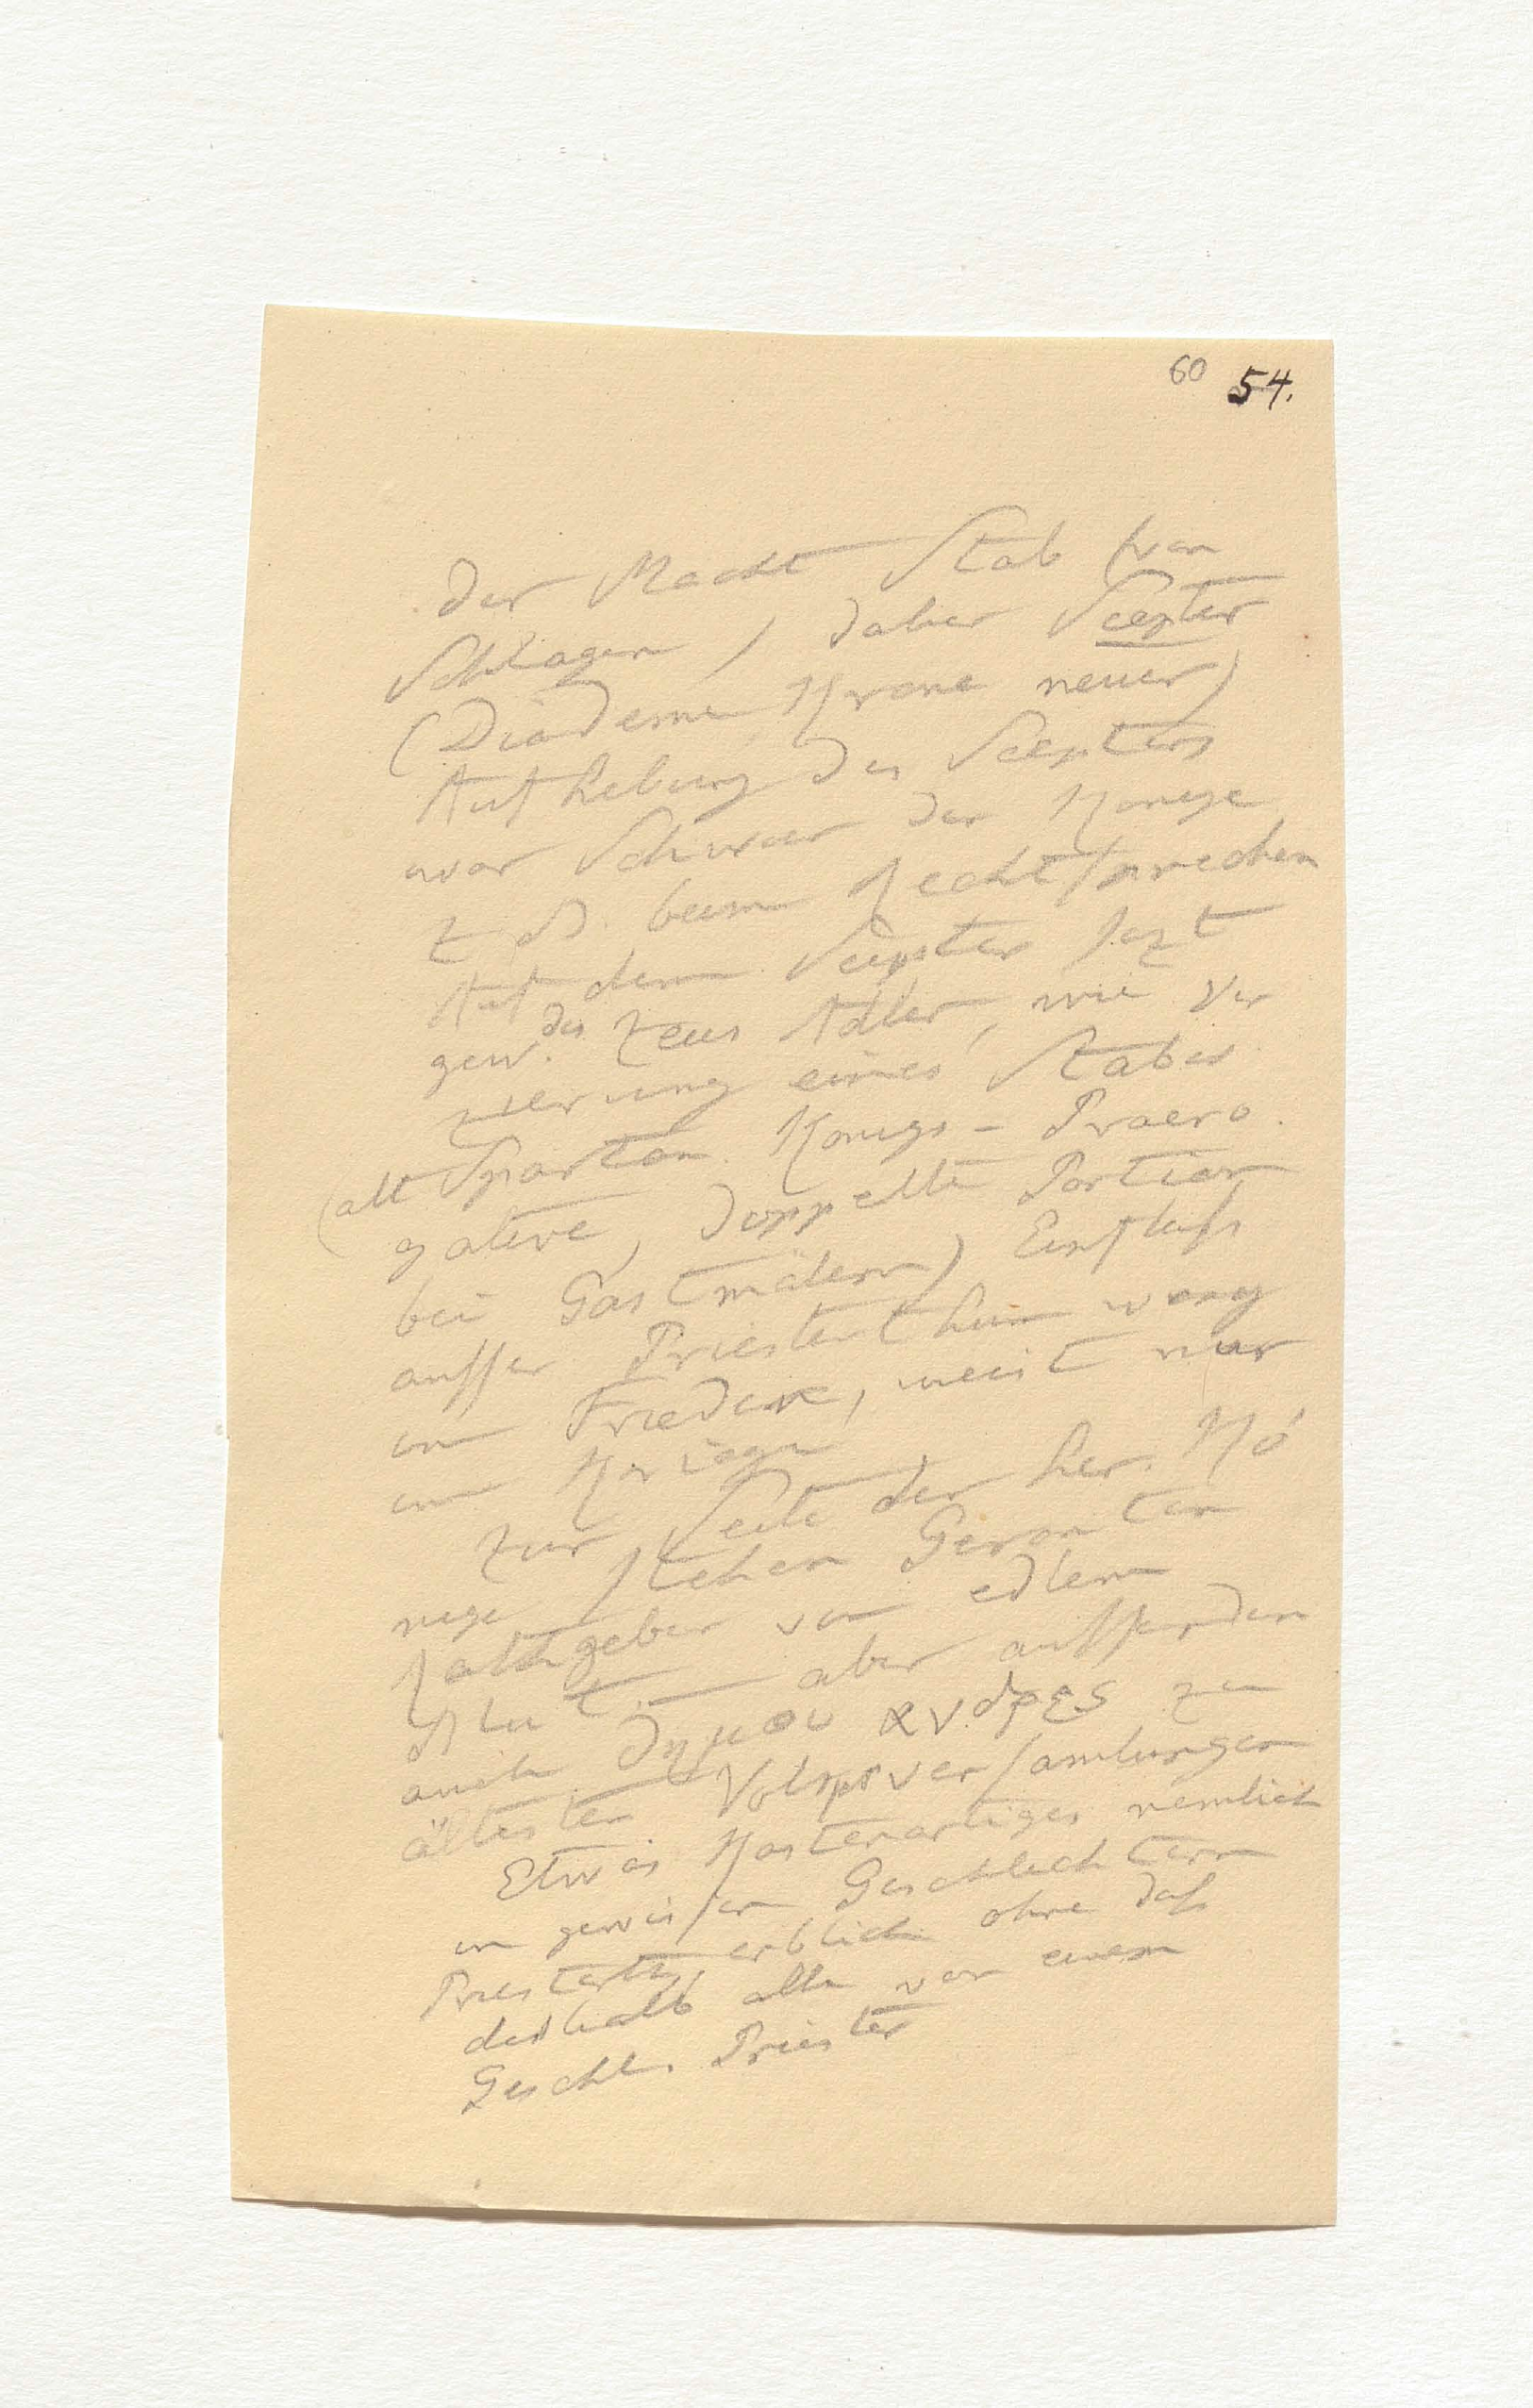 60 54.
der Macht Stab (von
Schlagen), daher Scepter
(Diademe Krone neuer)
Aufhebung des Scepters
war Schwur der Könige
z B. beim Rechtsprechen
Auf dem Scepter sezt
gew. des Zeus Adler, wie Ver
zierung eines Stabes
(alt Spartan. Königs-Praero.
gative, doppelte Portion
bei Gastmälern) Einfluß
ausser Priesterthum wenig
im Frieden, meist nur
im Kriege
Zur Seite der her. Kö
nige stehen Geronten
Rathgeber von edlem
Blut. – aber ausserdem
auch δημου ανδρες zu
ältesten Volksversamlungen
Etwas Kastenartiges nemlich
in gewissen Geschlechtern
Priesterth. erblich ohne daß
deshalb alle von einem
Geschl. Priester